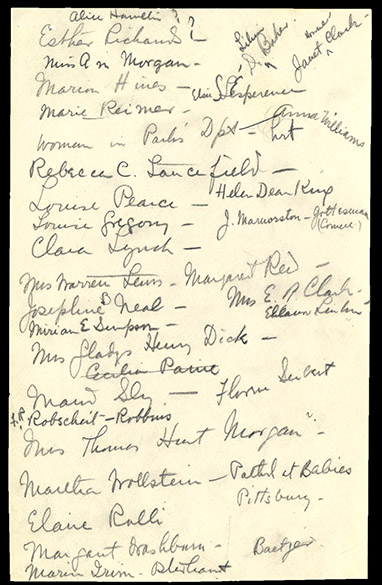 Alice Hamilton ?
Esther Richards ?
S. Baker -
Janet Clark -
Miss A m Morgan -
Marion Hines - Elise L'Esperence
Marie Reimer - Anna Williams
Woman in Park's Dpt - hrt
Rebecca C. Lancefield -
Louise Pearce - Helen Dean King
Louise Gregory - J. Marmorston - Gottesman
(Cornell)
Clara Lynch -
Mrs Warren Lewis - Margaret Reed -
Josephine B Neal - Mrs E. A Clark -
Miriam E Simpson - Eleanor Linton -
Mrs Gladys Henry Dick -
Cecilia Paine
Maud Sly - Florence Seibert
F.R. Robscheit-Robbins
Mrs Thomas Hunt Morgan -
Martha Wollstein - Pathol at Babies
Pittsburg -
Elaine Ralli
Margaret Washburn - Baetjer